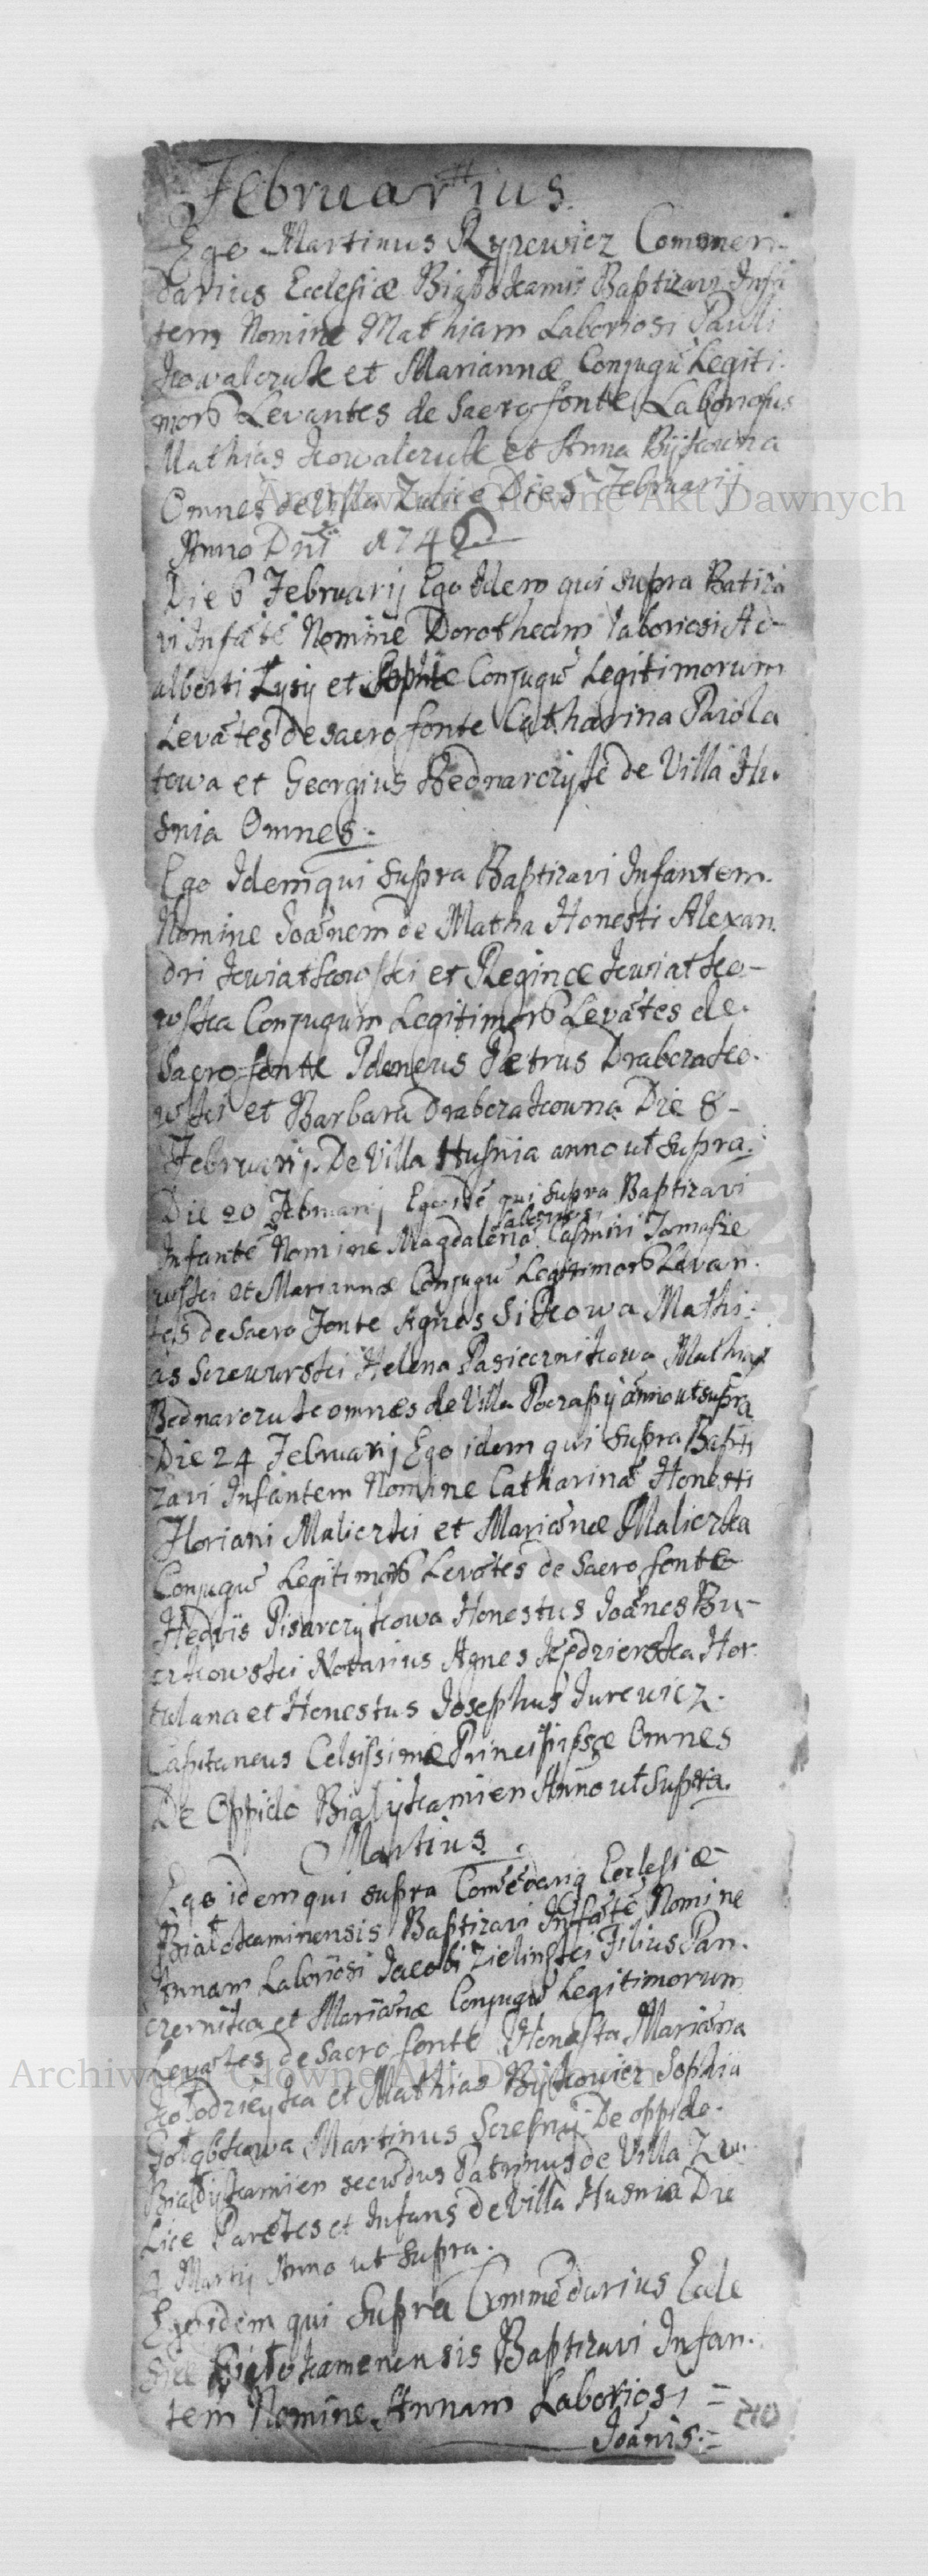 Februarius.
Ego Martinus Rypewicz Commen-
darius Ecclesiæ Białokamiē Baptizavi Infā
tem Nomine Mathiam Laboriosi Pauli
Kowalczuk et Mariannæ Conjugū Legiti-
morū Levantes de Sacro fonte Laboriosus
Mathias Kowalczuk et Anna Byskowna
Omnes de Villa Zulice Die 5 Februarij
Anno Dni 174
Die 6 Februarij Ego Idem qui supra Batiza
vi Infātē Nomine Dorotheam laboriosi Ad-
alberti Łysy et Sophiæ Conjugū Legitimorum
Levātes de sacro fonte Catharina Parola
kowa et Georgius Bednarczyk de Villa Hu-
snia Omnes.
Ego Idem qui supra Baptizavi Infantem.
Nomine Joānem de Matha Honesti Alexan
dri Kwiatkowski et Reginæ Kwiatko-
wska Conjugum Legitimorū Levātes de.
Sacro fonte Idoneus Petrus Drabczako-
wski et Barbara Drabczakowna Die 8-
Februarij. De Villa Husnia anno ut supra.
Die 20 Februarij Ego idē qui supra Baptizavi
Infantē Nomine Magdalenā Laboriosi Casmiri Tomasze
wski et Mariannæ Conjugū Legitimorū Levan-
tes de Sacro Fonte Agnes Sikowa Mathi-
as Szewurski Helena Pasiecznikowa Mathias
Bednarczuk omnes de Villa Poczapy anno ut supra
Die 24 Februarij Ego idem qui supra Bapti
zavi Infantem Nomine Catharinā Honesti
Floriani Maliczki et Mariānæ Maliczka
Conjugū Legitimorū Levātes de Sacro fonte
Hedvis Pisarczykowa Honestus Joānes Bu-
czkowski Notarius Agnes Kędzierska Hor
tulana et Honestus Josephus Jurewicz.
Capitaneus Celsissimæ Principissæ Omnes
De Oppido Białykamien Anno ut Supra.
Martius.
Ego idem qui supra Comēdariq Ecclesiæ
Białokaminensis Baptizavi Infātē Nomine
Annam Laboriosi Jacobi Zielinski Filius Pan-
czernika et Mariānæ Conjugū Legitimorum
Levātes de Sacro fonte Honesta Mariāna
Kołodzieyka et Mathias Byskowicz Sophia
Gołąbkowa Martinus Szresny De oppido.
Białykamien secūdus Patrinus de Villa Zu-
Lice Parētes et Infans de Villa Husnia Die
Martij Anno ut supra.
Ego idem qui Supra Commēdarius Eccle
siæ Białokamenensis Baptizavi Infan-
tem Nomine Annam Laboriosi =
Joānis. =
210
Archiwum Główne Akt Dawnych
Archiwum Główne Akt Dawnych